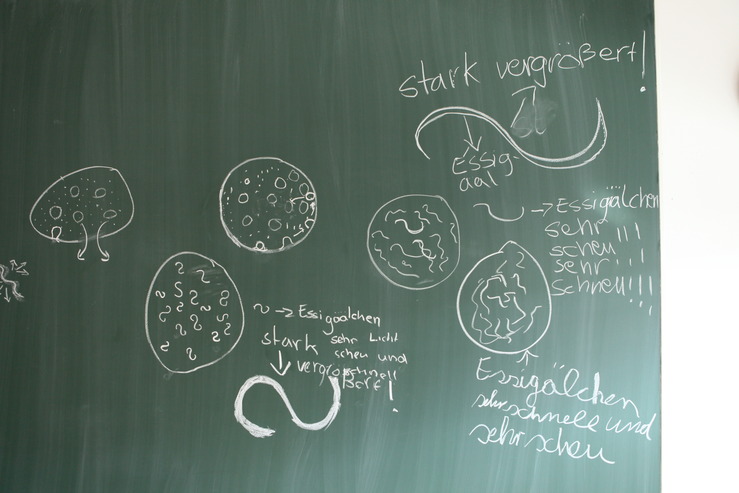 stark vergrößert!
Essig-
aal
→ Essigälchen
sehr
scheu!!!
sehr
schnell!!!
~ → Essigälchen
sehr Licht
scheu und
schnell
stark
vergrößert!
Essigälchen
sehr schnell und
sehr scheu